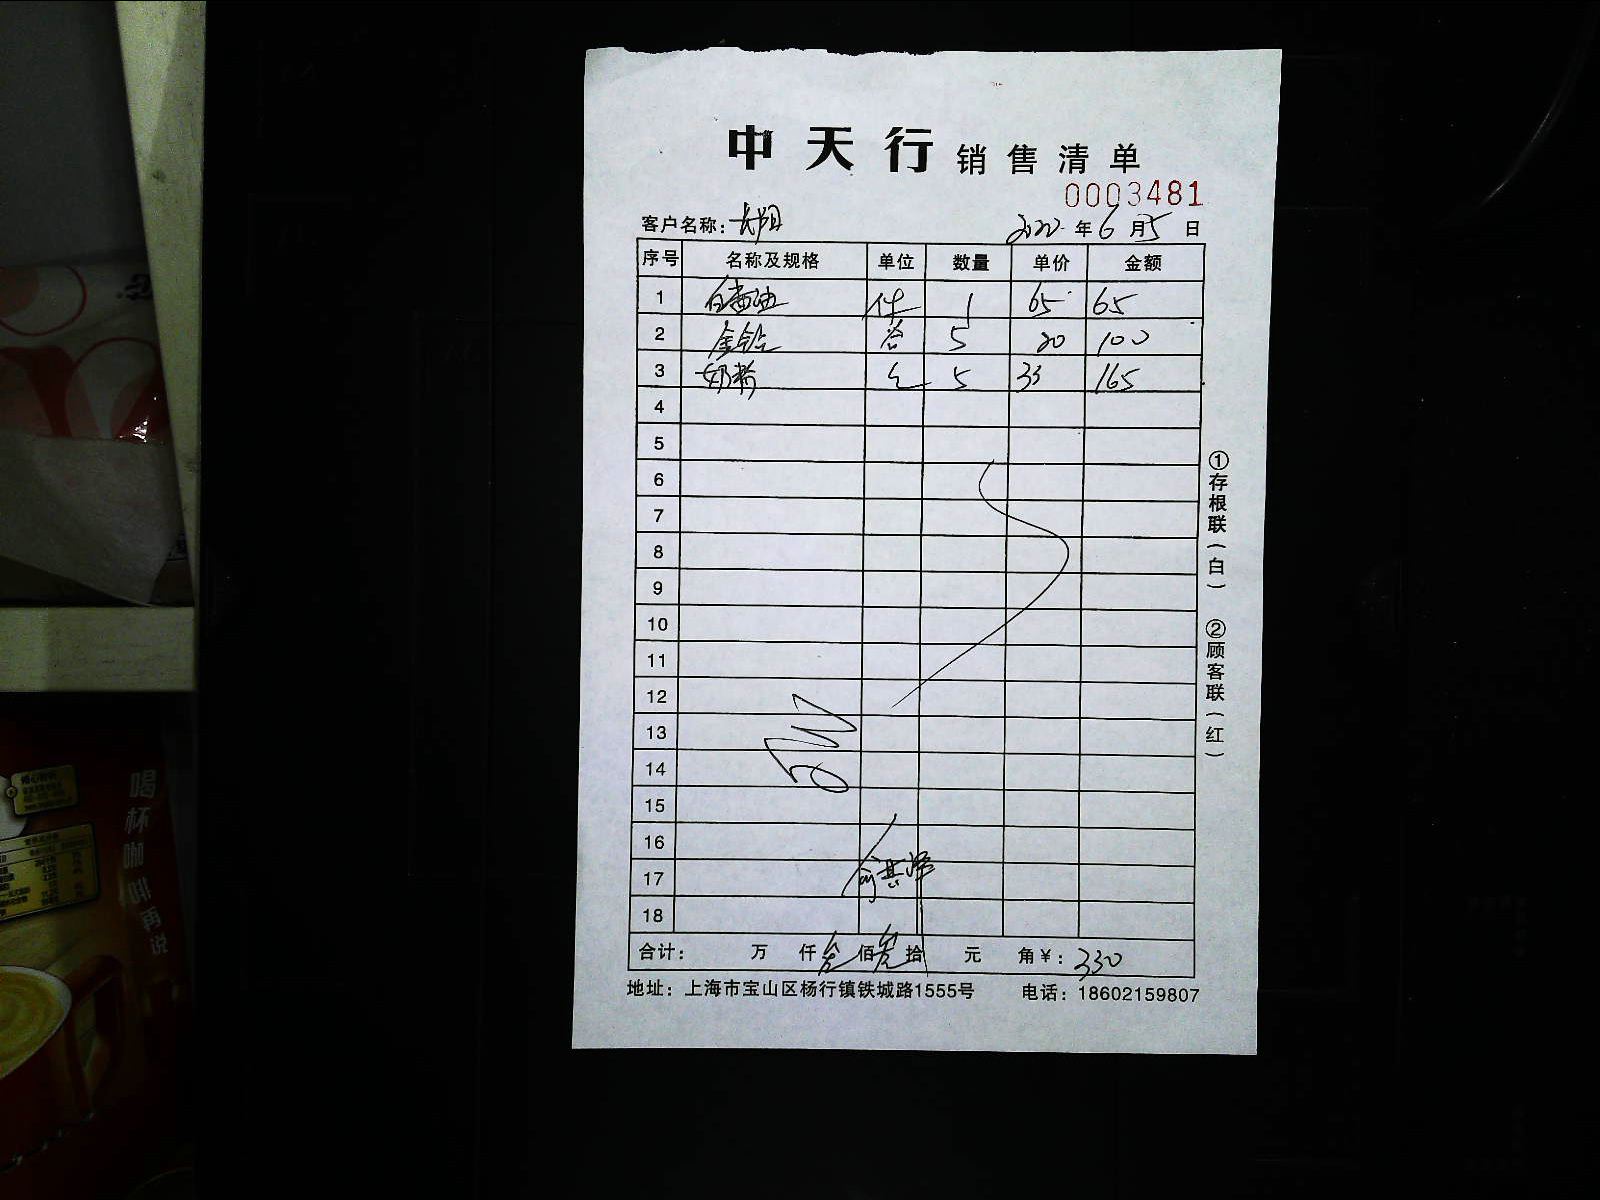 中天行 销售清单
0003481
客户名称：长阳 2022年6月5日
序号 名称及规格 单位 数量 单价 金额
1 白黄油 件 1 65 65
2 金铃 5 20 100
3 奶粉 5 33 165
4
5
6
7
8
9
10
11
12
13
14
15
16
17
18
合计： 万 仟 佰 拾 元 角 ￥：330
地址：上海市宝山区杨行镇铁城路1555号 电话：18602159807
①存根联（白） ②顾客联（红）
喝杯咖啡再说